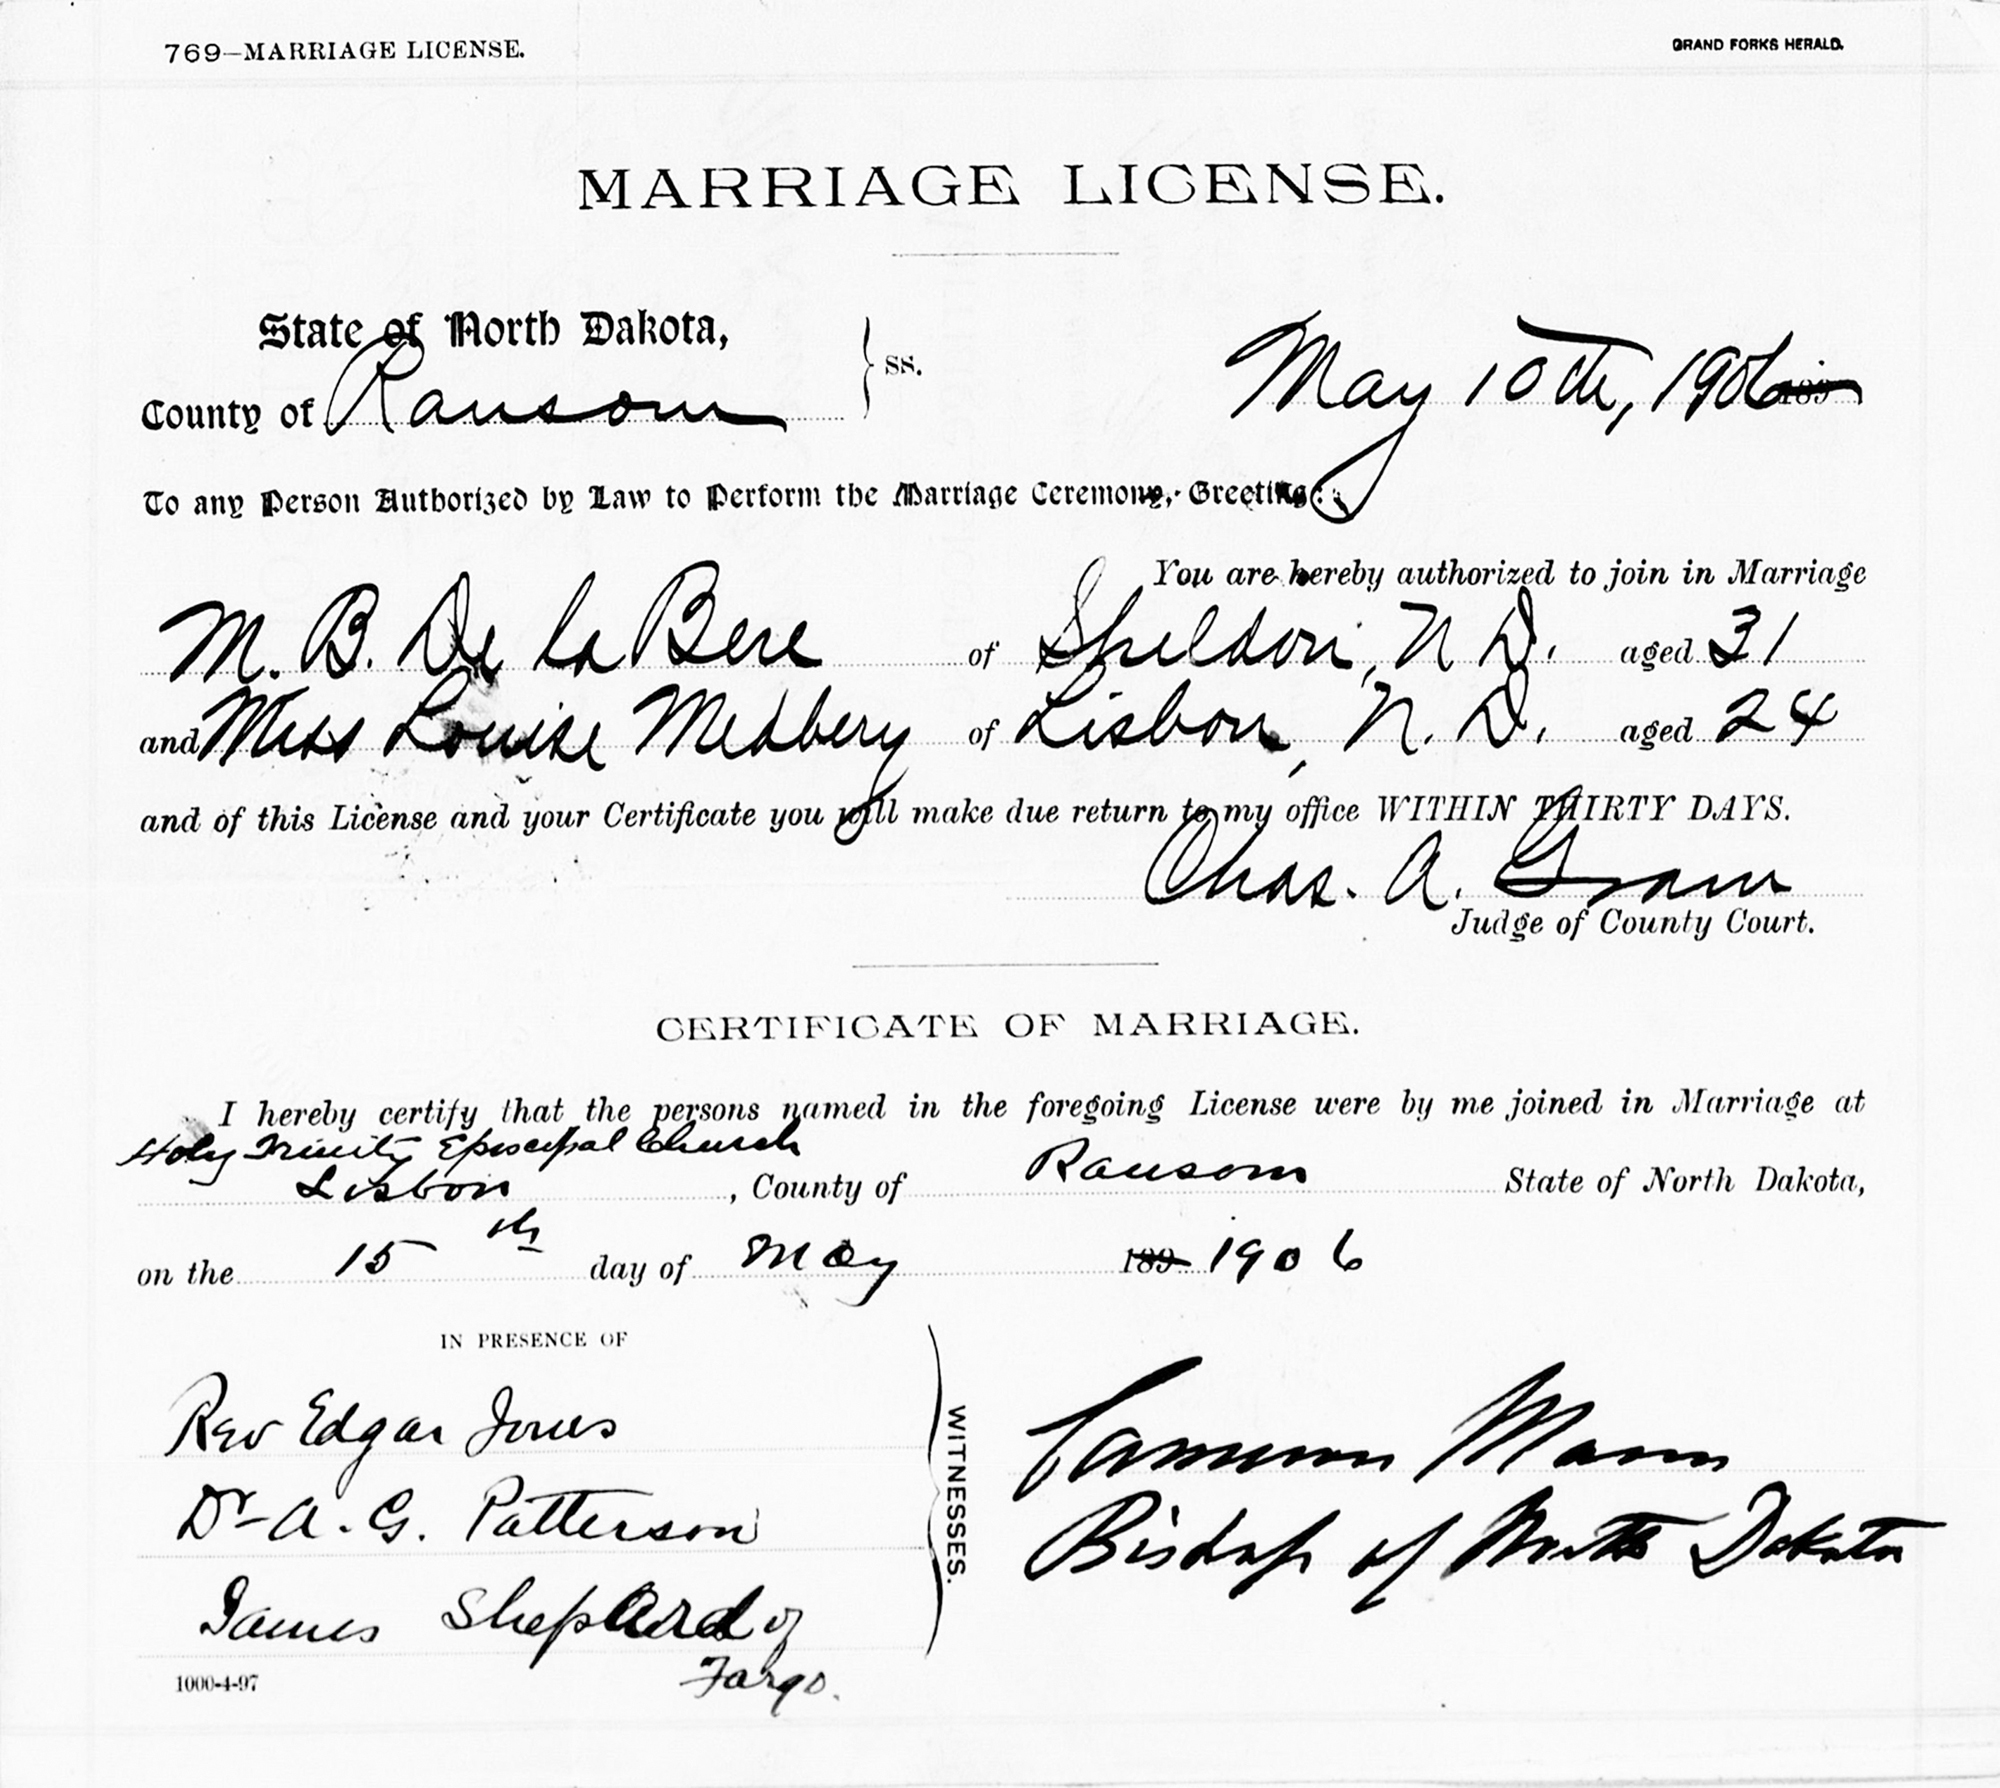 769–MARRIAGE LICENSE.
GRAND FORKS HERALD.
MARRIAGE LICENSE.
State of North Dakota,
County of Ransom
} SS.
May 10th, 1906 189
To any Person Authorized by Law to Perform the Marriage Ceremony, Greeting:
You are hereby authorized to join in Marriage
M. B. De la Bere of Sheldon, N D. aged 31
and Miss Louise Medbery of Lisbon, N. D. aged 24
and of this License and your Certificate you will make due return to my office WITHIN THIRTY DAYS.
Chas. A.
Judge of County Court.
CERTIFICATE OF MARRIAGE.
I hereby certify that the persons named in the foregoing License were by me joined in Marriage at
Holy Trinity Episcopal Church
Lisbon, County of Ransom State of North Dakota,
on the 15th day of May 189 1906
IN PRESENCE OF
Rev Edgar Jones
Dr A. G. Patterson
James Shephard of
Fargo.
WITNESSES.
Cameron Mann
Bishop of North Dakota
1000-4-97